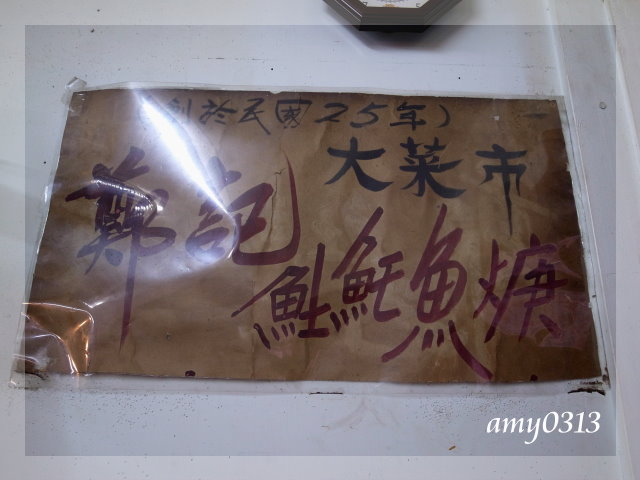 創於民國25年）
大菜市
鄭記
魠魠魚焿
amy0313